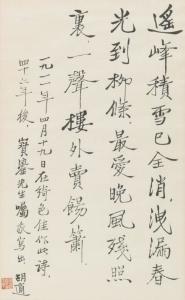 遙峰積雪已全消,洩漏春
光到柳條。最愛晚風殘照
裏,一聲樓外賣餳簫。
一九一一年四月十九日在綺色佳作此詩,
四十六年後,先生囑我寫出 胡適